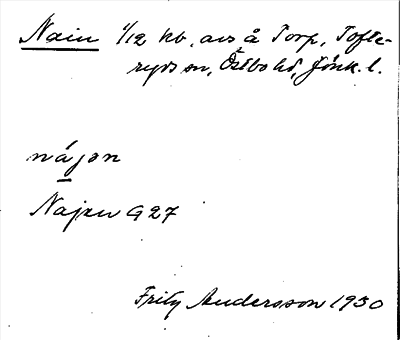 Nain 1/12 kb, avs å Torp, Tofte-
ryds sn, Östbo hd, Jönk. l.
nájən
Najen G27
Fritz Andersson 1930